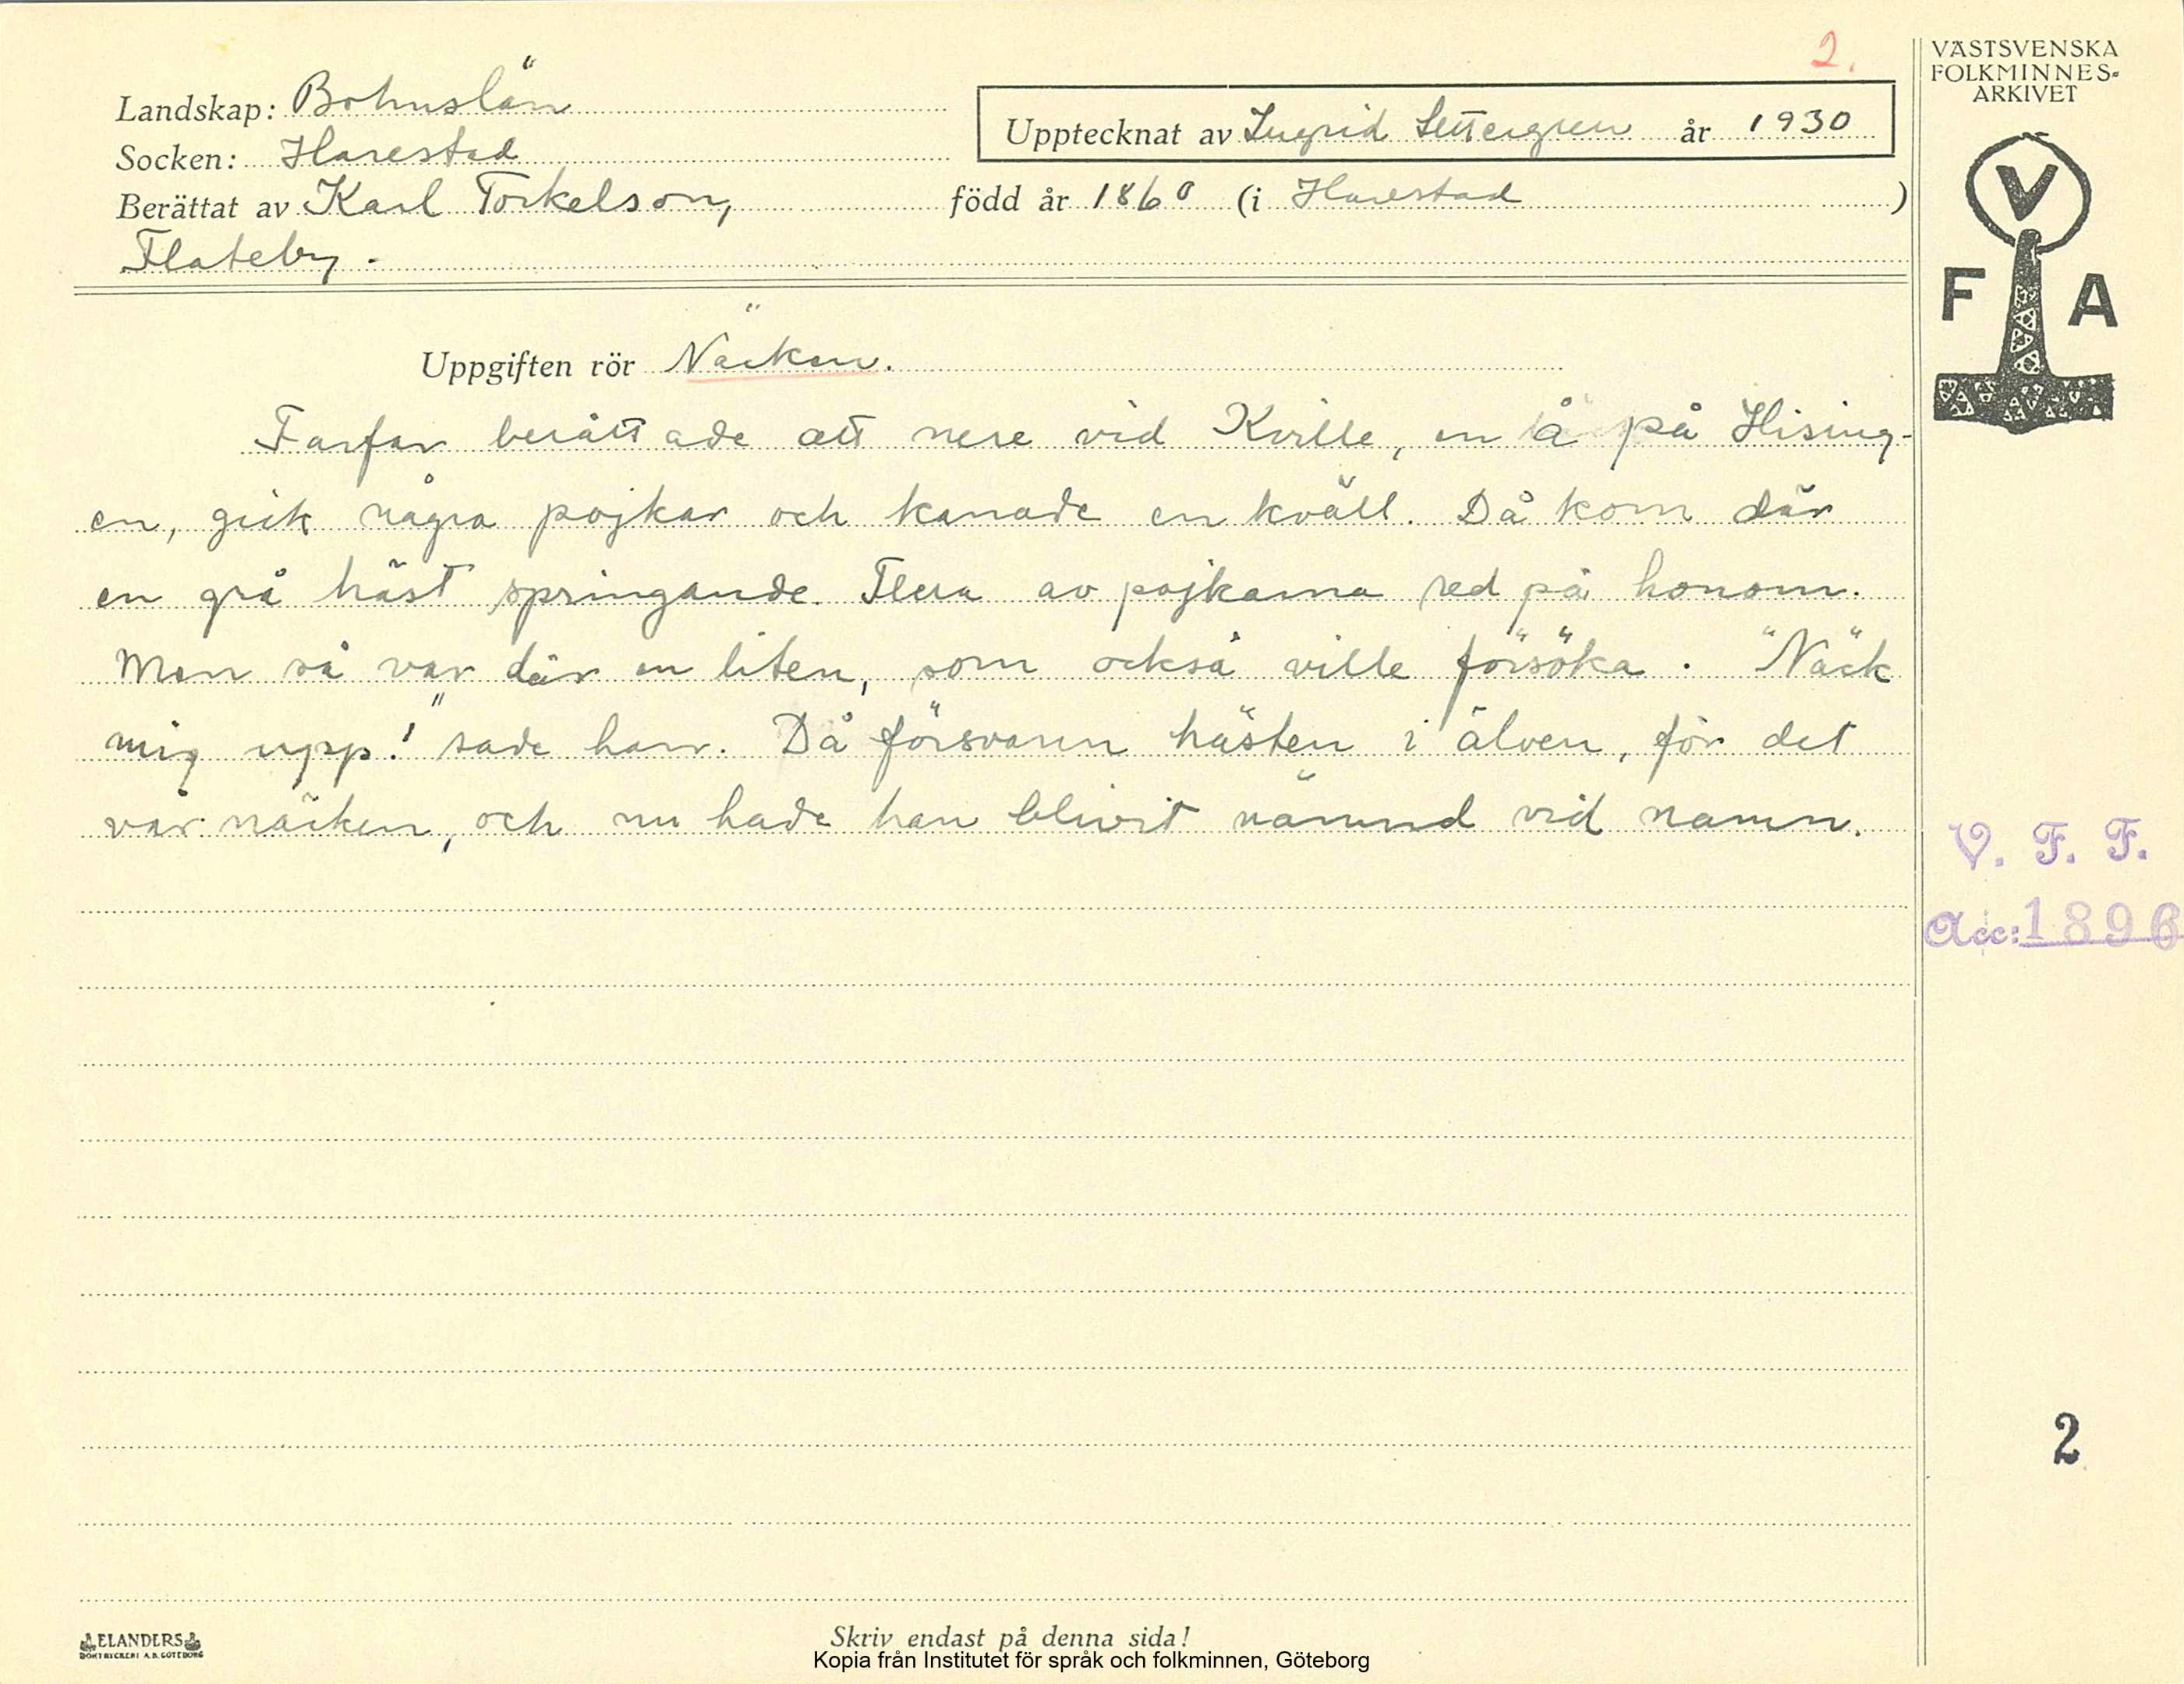 2.
VÄSTSVENSKA
FOLKMINNES-
ARKIVET
Landskap: Bohuslän
Upptecknat av Ingrid Settergren år 1930
Socken: Harestad
Berättat av Karl Torkelson, född år 1860 (i Harestad )
Flateby.
V
F A
Uppgiften rör Näcken.
Farfar berättade att nere vid Kville, en å på Hising-
en, gick några pojkar och kanade en kväll. Då kom där
en grå häst springande. Flera av pojkarna red på honom.
Men så var där en liten, som också ville försöka. "Näck
mig upp!" sade han. Då försvann hästen i älven, för det
var näcken, och nu hade han blivit nämnd vid namn.
V. F. F.
Acc: 1896
2
ELANDERS
BOKTRYCKERI A.B. GÖTEBORG
Skriv endast på denna sida!
Kopia från Institutet för språk och folkminnen, Göteborg